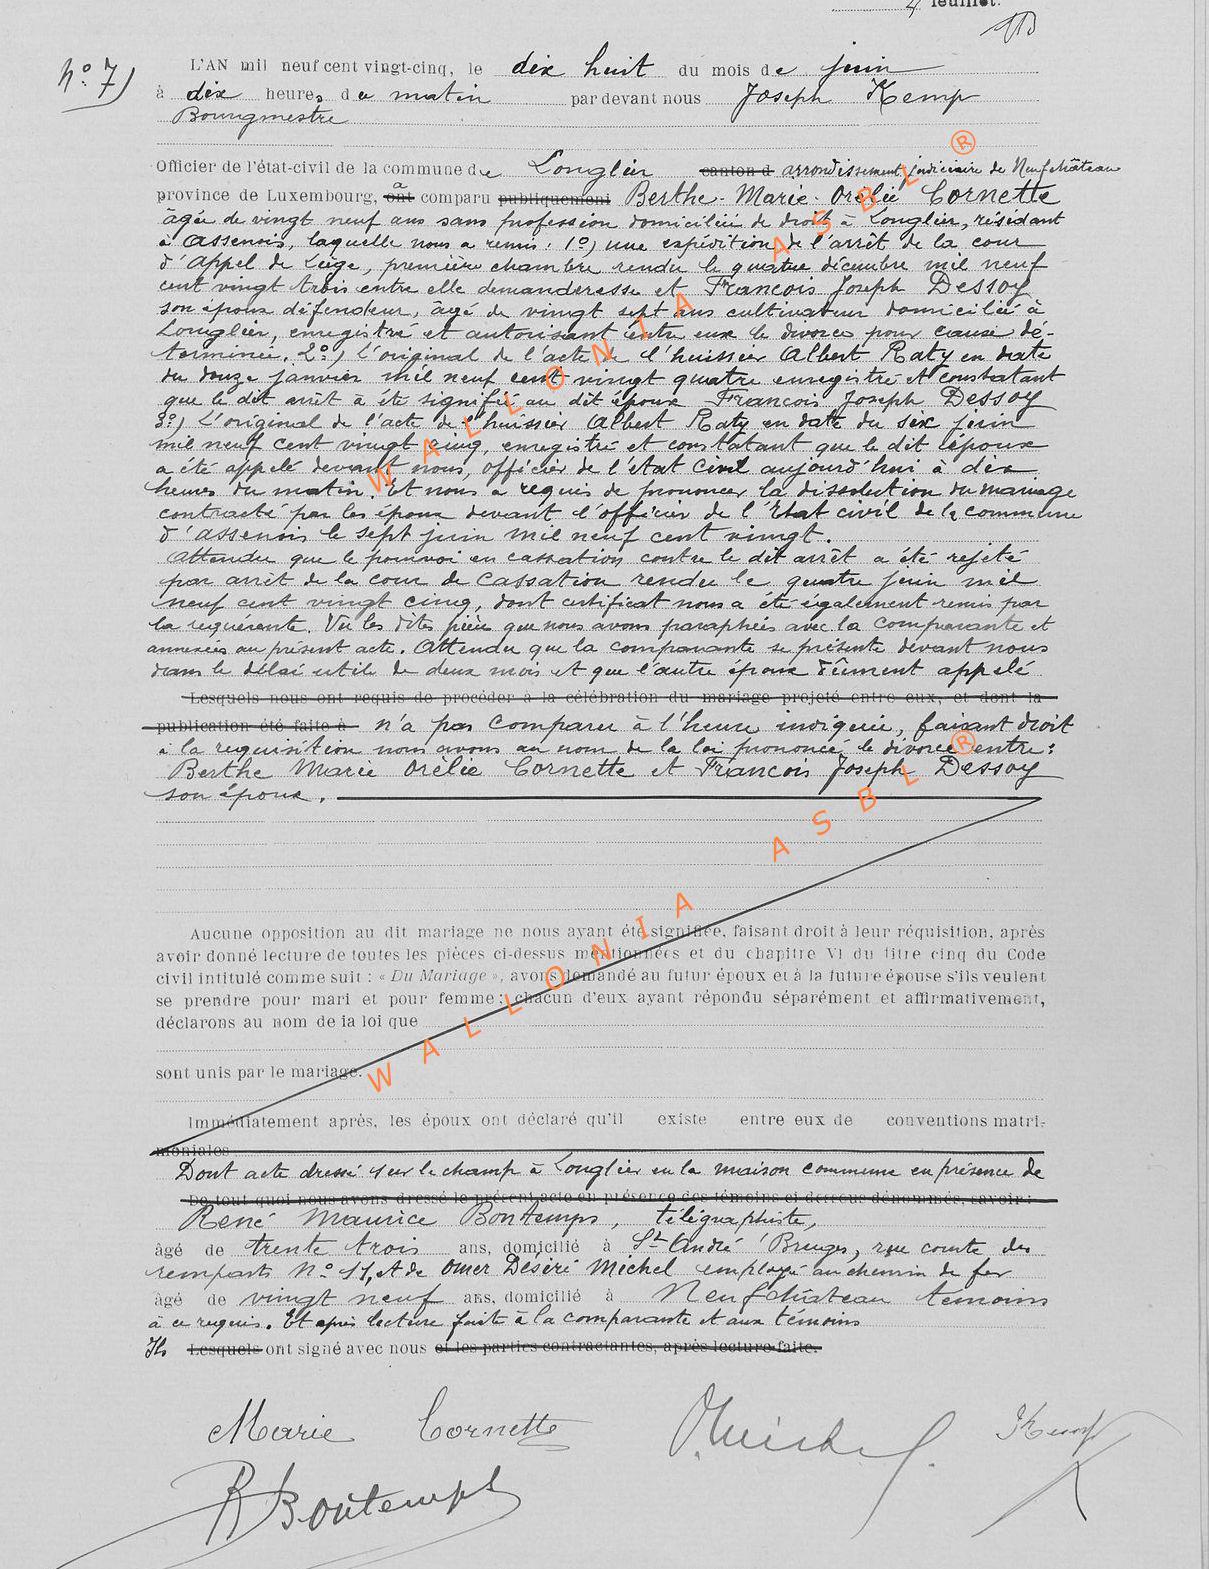 4 feuillet.
N° 7)
L'AN mil neuf cent vingt-cinq, le dix huit du mois de juin
à dix heures du matin par devant nous Joseph Kemp
Bourgmestre
Officier de l'état-civil de la commune de Longlier canton d arrondissement judiciaire de Neufchâteau
province de Luxembourg, ont a comparu publiquement Berthe-Marie-Orélie Cornette
âgée de vingt neuf ans sans profession domiciliée de droit à Longlier, résidant
à Assenois, laquelle nous a remis: 1°) une expédition de l'arrêt de la cour
d'Appel de Liège, première chambre rendu le quatre décembre mil neuf
cent vingt trois entre elle demanderesse et François Joseph Dessoy
son époux défendeur, âgé de vingt sept ans cultivateur domicilié à
Longlier, enregistré et autorisant entre eux le divorce pour cause dé-
terminée. 2°) l'original de l'acte de l'huissier Albert Raty en date
du douze janvier mil neuf cent vingt quatre enregistré et constatant
que le dit arrêt à été signifié au dit époux François Joseph Dessoy
3°) L'original de l'acte de l'huissier Albert Raty en date du six juin
mil neuf cent vingt cinq, enregistré et constatant que le dit époux
a été appelé devant nous, officier de l'état civil aujourd'hui à dix
heures du matin. Et nous a requis de prononcer la dissolution du mariage
contracté par les époux devant l'officier de l'Etat civil de la commune
d'assenois le sept juin mil neuf cent vingt.
Attendu que le pourvoi en cassation contre le dit arrêt a été rejeté
par arrêt de la cour de Cassation rendu le quatre juin mil
neuf cent vingt cinq, dont certificat nous a été également remis par
la requérante. Vu les dites pièces que nous avons paraphées avec la comparante et
annexées au présent acte. Attendu que la comparante se présente devant nous
dans le délai utile de deux mois et que l'autre époux dûment appelé
Lesquels nous ont requis de procéder à la célébration du mariage projeté entre eux, et dont la
publication été faite à n'a pas comparu à l'heure indiquée, faisant droit
à la requisition nous avons au nom de la loi prononcé le divorce entre:
Berthe Marie Orélie Cornette et François Joseph Dessoy
son époux.
Aucune opposition au dit mariage ne nous ayant été signifiée, faisant droit à leur réquisition, après
avoir donné lecture de toutes les pièces ci-dessus mentionnées et du chapitre VI du titre cinq du Code
civil intitulé comme suit : « Du Mariage », avons demandé au futur époux et à la future épouse s'ils veulent
se prendre pour mari et pour femme; chacun d'eux ayant répondu séparément et affirmativement,
déclarons au nom de la loi que
sont unis par le mariage.
Immédiatement après, les époux ont déclaré qu'il existe entre eux de conventions matri-
moniales
Dont acte dressé sur le champ à Longlier en la maison commune en présence de
De tout quoi nous avons dressé le présent acte en présence des témoins ci dessous dénommés, savoir:
René Maurice Bontemps, télégraphiste,
âgé de trente trois ans, domicilié à St André Bruges, rue comte des
remparts N° 11, et de Omer Désiré Michel employé au chemin de fer
âgé de vingt neuf ans, domicilié à Neufchâteau témoins
à ce requis. Et après lecture faite à la comparante et aux témoins
Ils Lesquels ont signé avec nous et les parties contractantes, après lecture faite.
Marie Cornette O. Michel J Kemp
R Bontemps
WALLONIA ASBL ®
WALLONIA ASBL ®